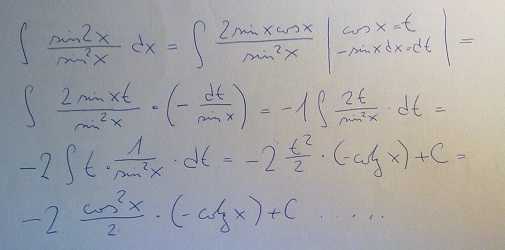 ∫ sin2x / sin²x dx = ∫ 2sinxcosx / sin²x | cosx=t -sinxdx=dt | =
∫ 2sinxt / sin²x · (- dt / sinx) = -1 ∫ 2t / sin²x · dt =
-2 ∫ t · 1 / sin²x · dt = -2 t² / 2 · (-cotgx) + C =
-2 cos²x / 2 · (-cotgx) + C .....